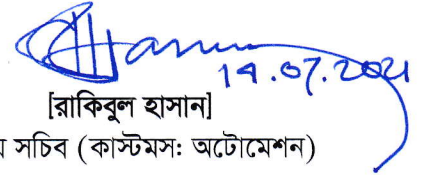 14.07.2021
[রাকিবুল হাসান]
সচিব (কাস্টমস: অটোমেশন)